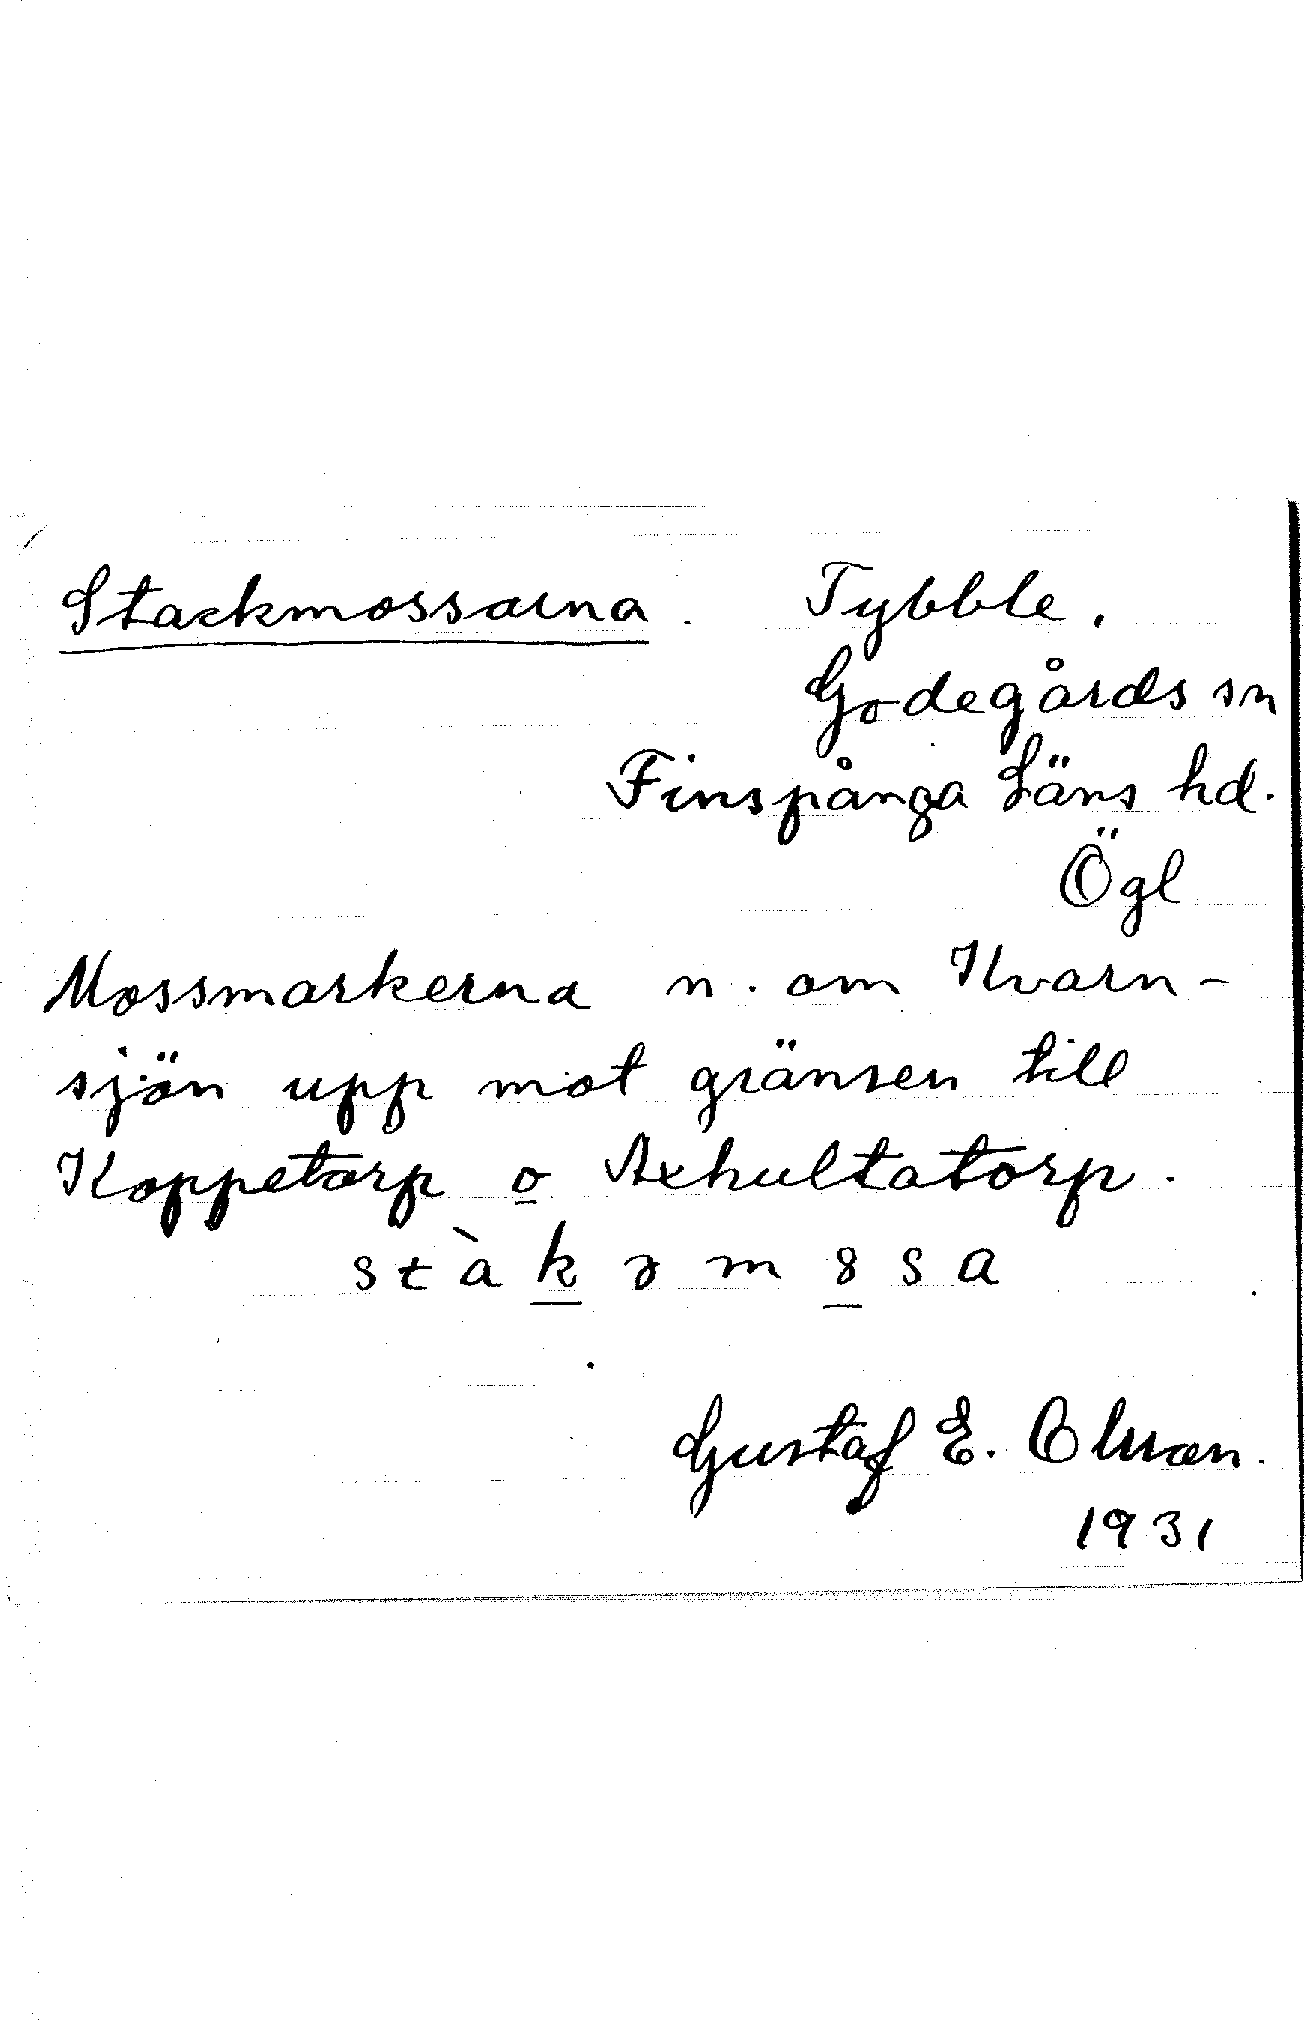 Stackmossarna. Tybble.
Godegårds sn
Finspånga Läns hd.
Ögl
Mossmarkerna n. om Kvarn-
sjön upp mot gränsen till
Koppetorp o Axhultatorp.
Gustaf E. Olman.
1931